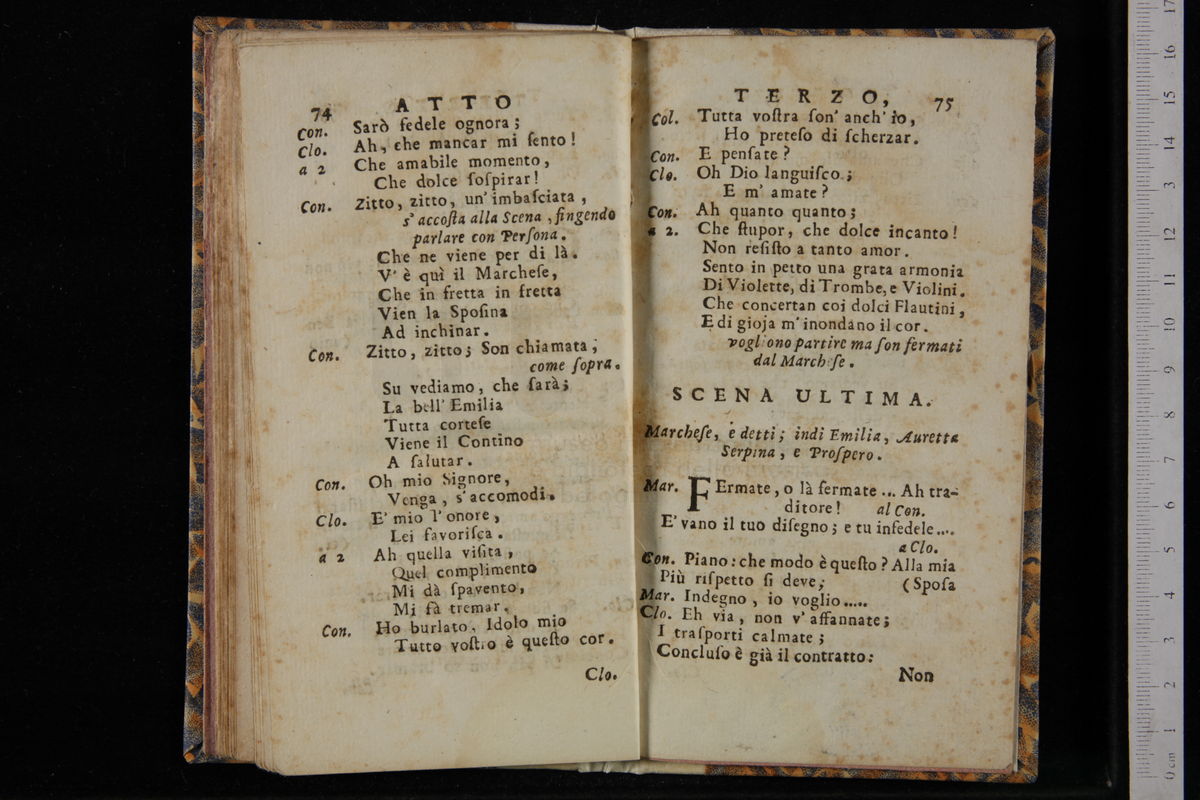 74 ATTO
Con. Sarò fedele ognora;
Clo. Ah, che mancar mi ſento!
a 2 Che amabile momento,
Che dolce ſoſpirar!
Con. Zitto, zitto, un' imbaſciata,
s' accoſta alla Scena, fingendo
parlare con Perſona.
Che ne viene per di là.
V' è quì il Marcheſe,
Che in fretta in fretta
Vien la Spoſina
Ad inchinar.
Con. Zitto, zitto; Son chiamata;
come ſopra.
Su vediamo, che ſarà;
La bell' Emilia
Tutta corteſe
Viene il Contino
A ſalutar.
Con. Oh mio Signore,
Venga, s' accomodi.
Clo. E' mio l' onore,
Lei favoriſca.
a 2 Ah quella viſita,
Quel complimento
Mi dà ſpavento,
Mi fà tremar.
Con. Ho burlato, Idolo mio
Tutto voſtro è queſto cor.
Clo.
TERZO, 75
Col. Tutta voſtra ſon' anch' io,
Ho preteſo di ſcherzar.
Con. E penſate?
Clo. Oh Dio languiſco;
E m' amate?
Con. Ah quanto quanto;
a 2. Che ſtupor, che dolce incanto!
Non reſiſto a tanto amor.
Sento in petto una grata armonia
Di Violette, di Trombe, e Violini.
Che concertan coi dolci Flautini,
E di gioja m' inondano il cor.
vogliono partire ma ſon fermati
dal Marcheſe.
SCENA ULTIMA.
Marcheſe, e detti; indi Emilia, Auretta
Serpina, e Proſpero.
Mar. FErmate, o là fermate... Ah tra-
ditore! al Con.
E' vano il tuo diſegno; e tu infedele....
a Clo.
Con. Piano: che modo è queſto? Alla mia
Più riſpetto ſi deve; (Spoſa
Mar. Indegno, io voglio.....
Clo. Eh via, non v' affannate;
I traſporti calmate;
Concluſo è già il contratto:
Non
0 cm 1 2 3 4 5 6 7 8 9 10 11 12 13 14 15 16 17